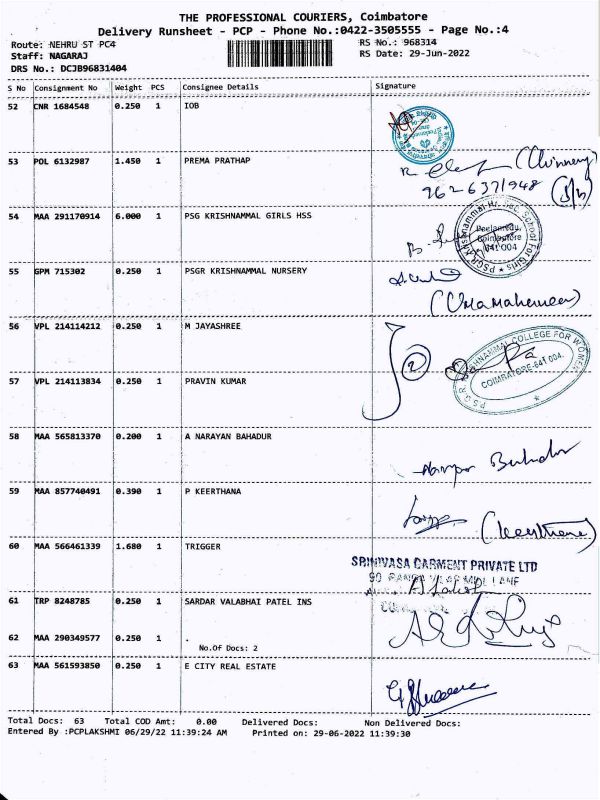 THE PROFESSIONAL COURIERS, Coimbatore
Delivery Runsheet - PCP - Phone No.:0422-3505555 - Page No.:4
Route: NEHRU ST PC4 RS No.: 968314
Staff: NAGARAJ RS Date: 29-Jun-2022
DRS No.: DCJB96831404
S No Consignment No Weight PCS Consignee Details Signature
52 CNR 1684548 0.250 1 IOB
53 POL 6132987 1.450 1 PREMA PRATHAP
9626371948
54 MAA 291170914 6.000 1 PSG KRISHNAMMAL GIRLS HSS
Peelamedu, Coimbatore 641 004
55 GPM 715302 0.250 1 PSGR KRISHNAMMAL NURSERY
56 VPL 214114212 0.250 1 M JAYASHREE
2
PSGR KRISHNAMMAL COLLEGE FOR WOMEN
COIMBATORE-641 004.
57 VPL 214113834 0.250 1 PRAVIN KUMAR
58 MAA 565813370 0.200 1 A NARAYAN BAHADUR
Bahadur
59 MAA 857740491 0.390 1 P KEERTHANA
(Keerthana)
60 MAA 566461339 1.680 1 TRIGGER
SRINIVASA GARMENT PRIVATE LTD
61 TRP 8248785 0.250 1 SARDAR VALABHAI PATEL INS
62 MAA 290349577 0.250 1 .
No.Of Docs: 2
63 MAA 561593850 0.250 1 E CITY REAL ESTATE
Total Docs: 63 Total COD Amt: 0.00 Delivered Docs: Non Delivered Docs:
Entered By :PCPLAKSHMI 06/29/22 11:39:24 AM Printed on: 29-06-2022 11:39:30